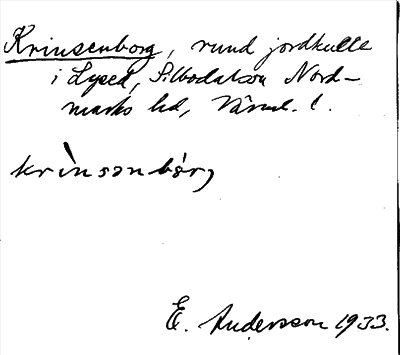 Krinsenborg, rund jordkulle
i Lysed, S. Nord-
marks hd, Värml. l.
krìnsənbòrj
E. Andersson 1933.